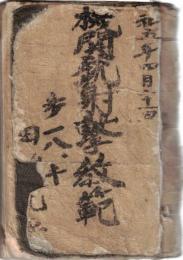 和五年四月二十一日
機関銃射撃教範
歩一八、十